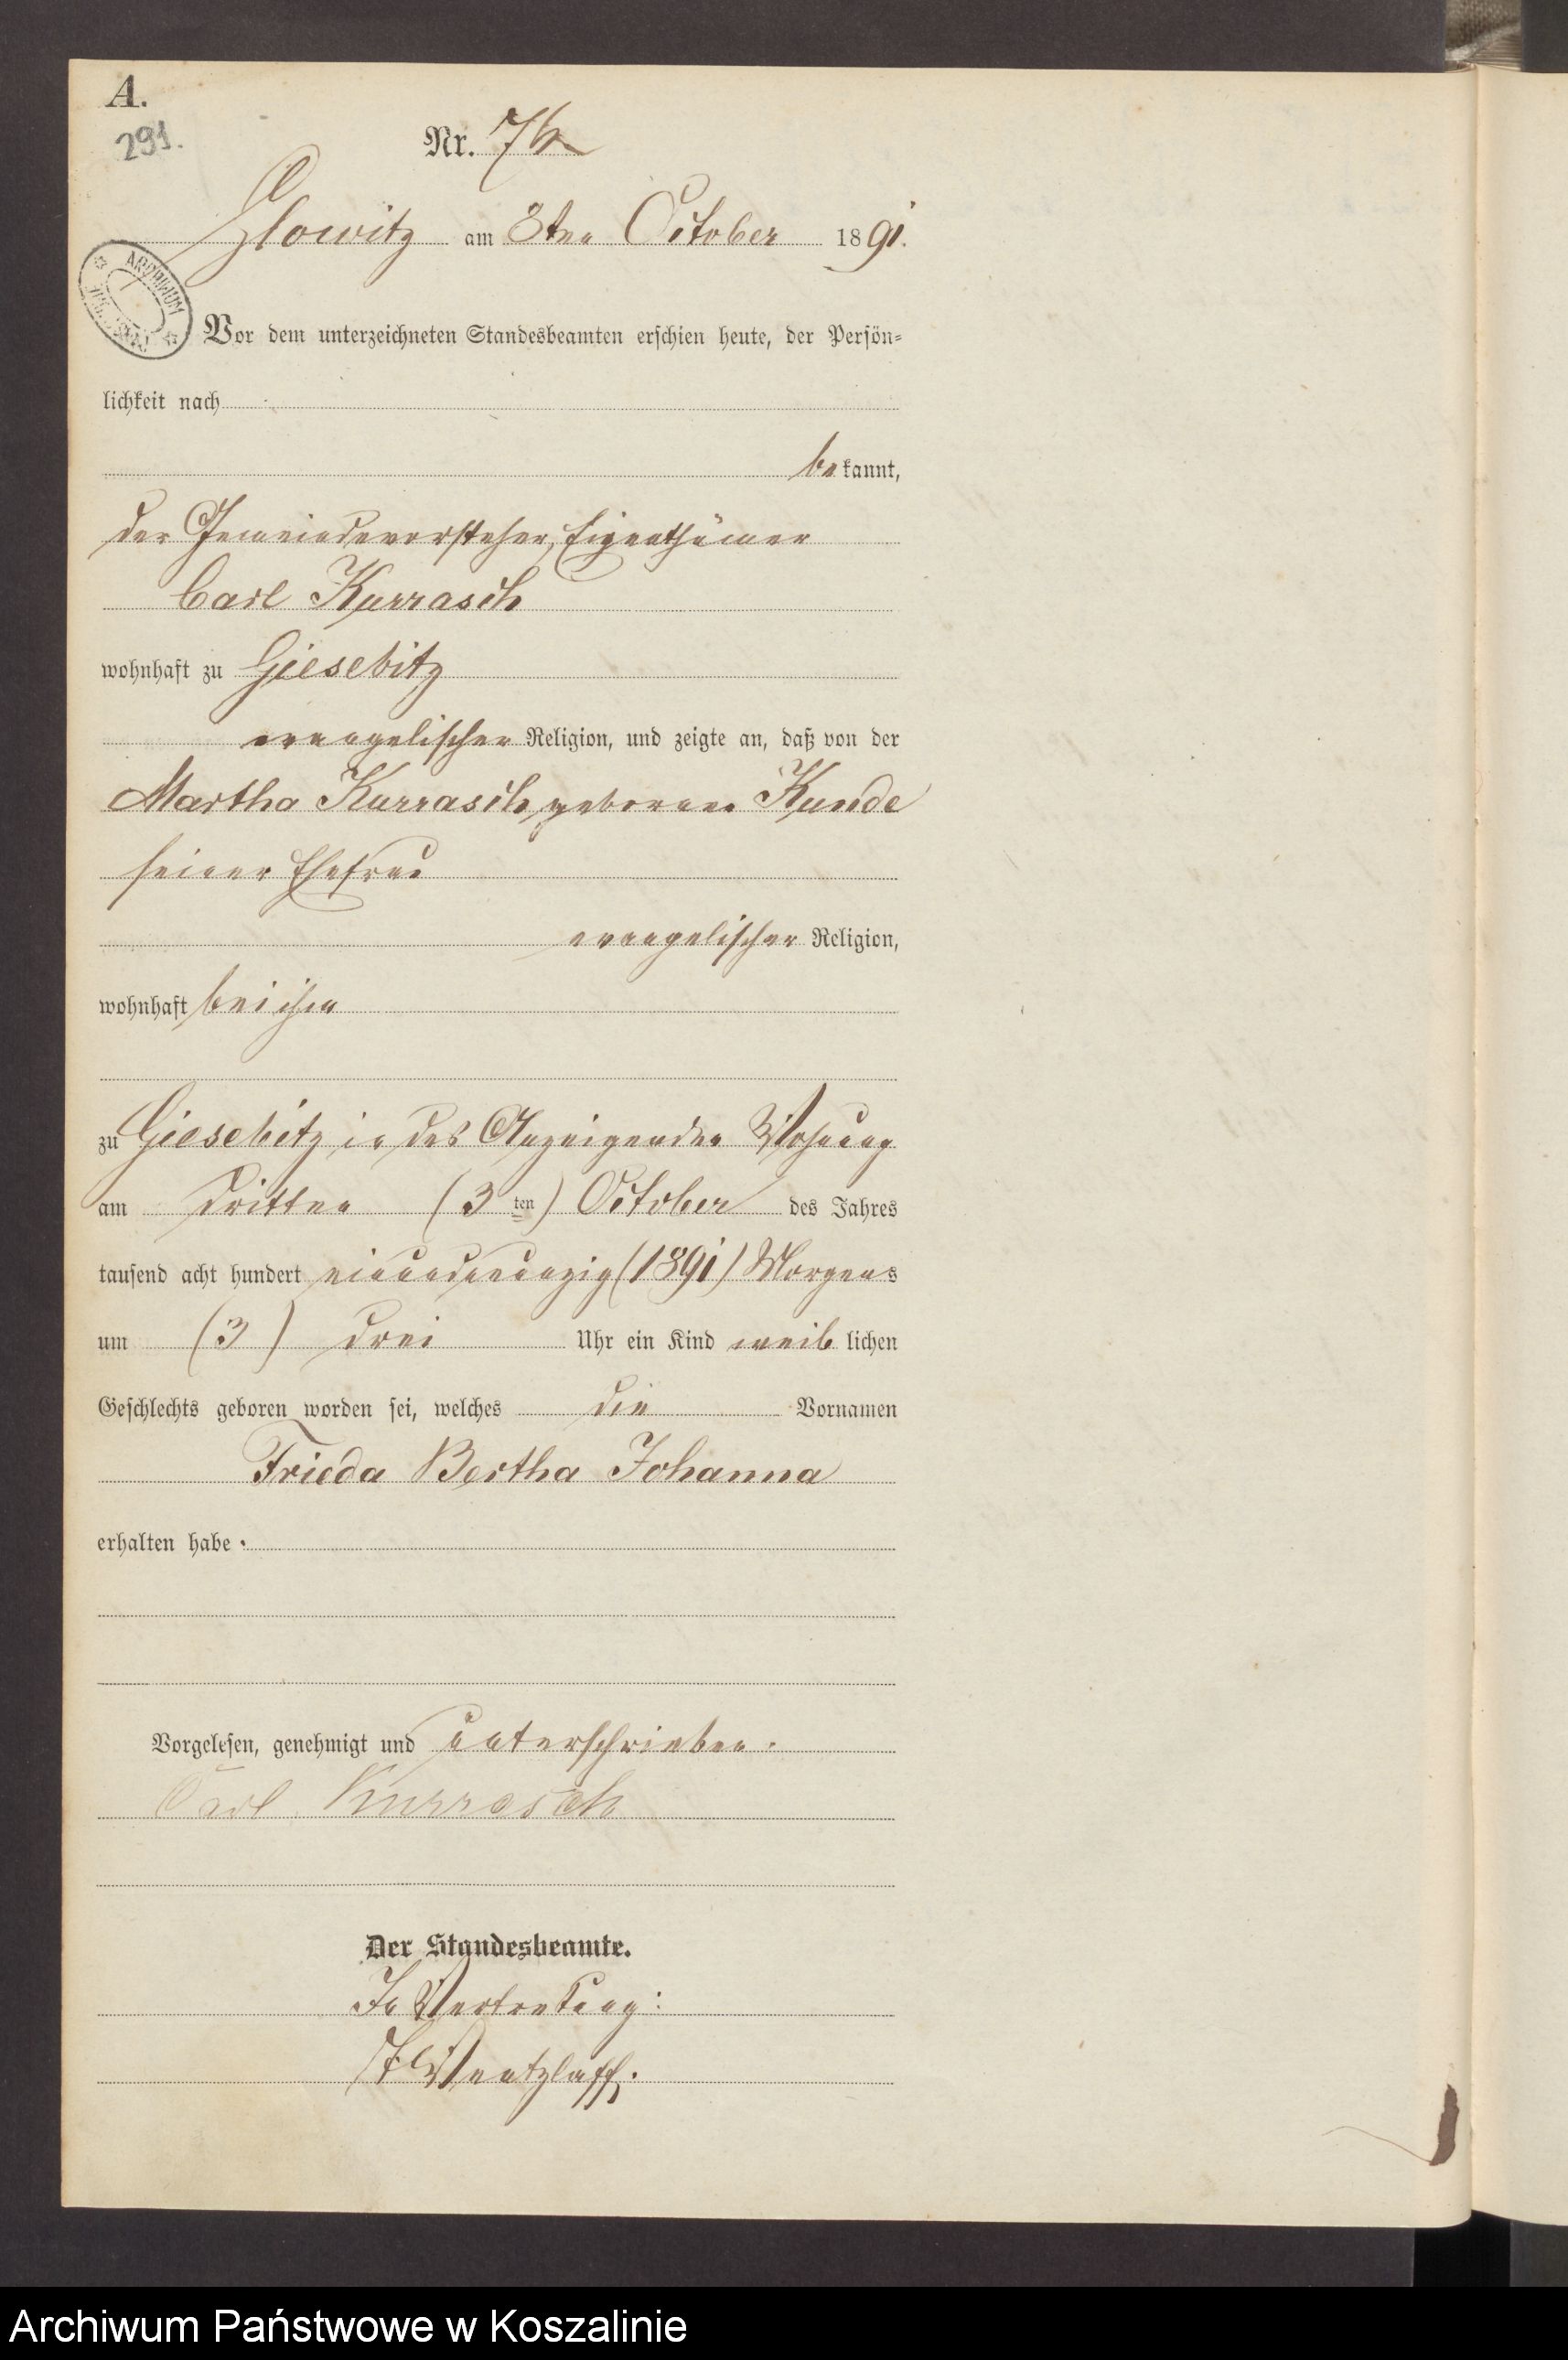 A.
291.
Nr. 76
Glowitz am 8ten October 1891.
ARCHIWUM
Vor dem unterzeichneten Standesbeamten erschien heute, der Persön-
lichkeit nach
bekannt,
der Gemeindevorsteher, Eigenthümer
Carl Kurrasch
wohnhaft zu Giesebitz
evangelischer Religion, und zeigte an, daß von der
Martha Kurrasch geborenen Kunde
seiner Ehefrau
evangelischer Religion,
wohnhaft bei ihm
zu Giesebitz in des Anzeigenden Wohnung
am dritten (3ten) October des Jahres
tausend acht hundert einundneunzig (1891) Morgens
um (3) drei Uhr ein Kind weiblichen
Geschlechts geboren worden sei, welches die Vornamen
Frieda Bertha Johanna
erhalten habe.
Vorgelesen, genehmigt und unterschrieben.
Carl Kurrasch
Der Standesbeamte.
In Vertretung:
Wentzlaff.
Archiwum Państwowe w Koszalinie